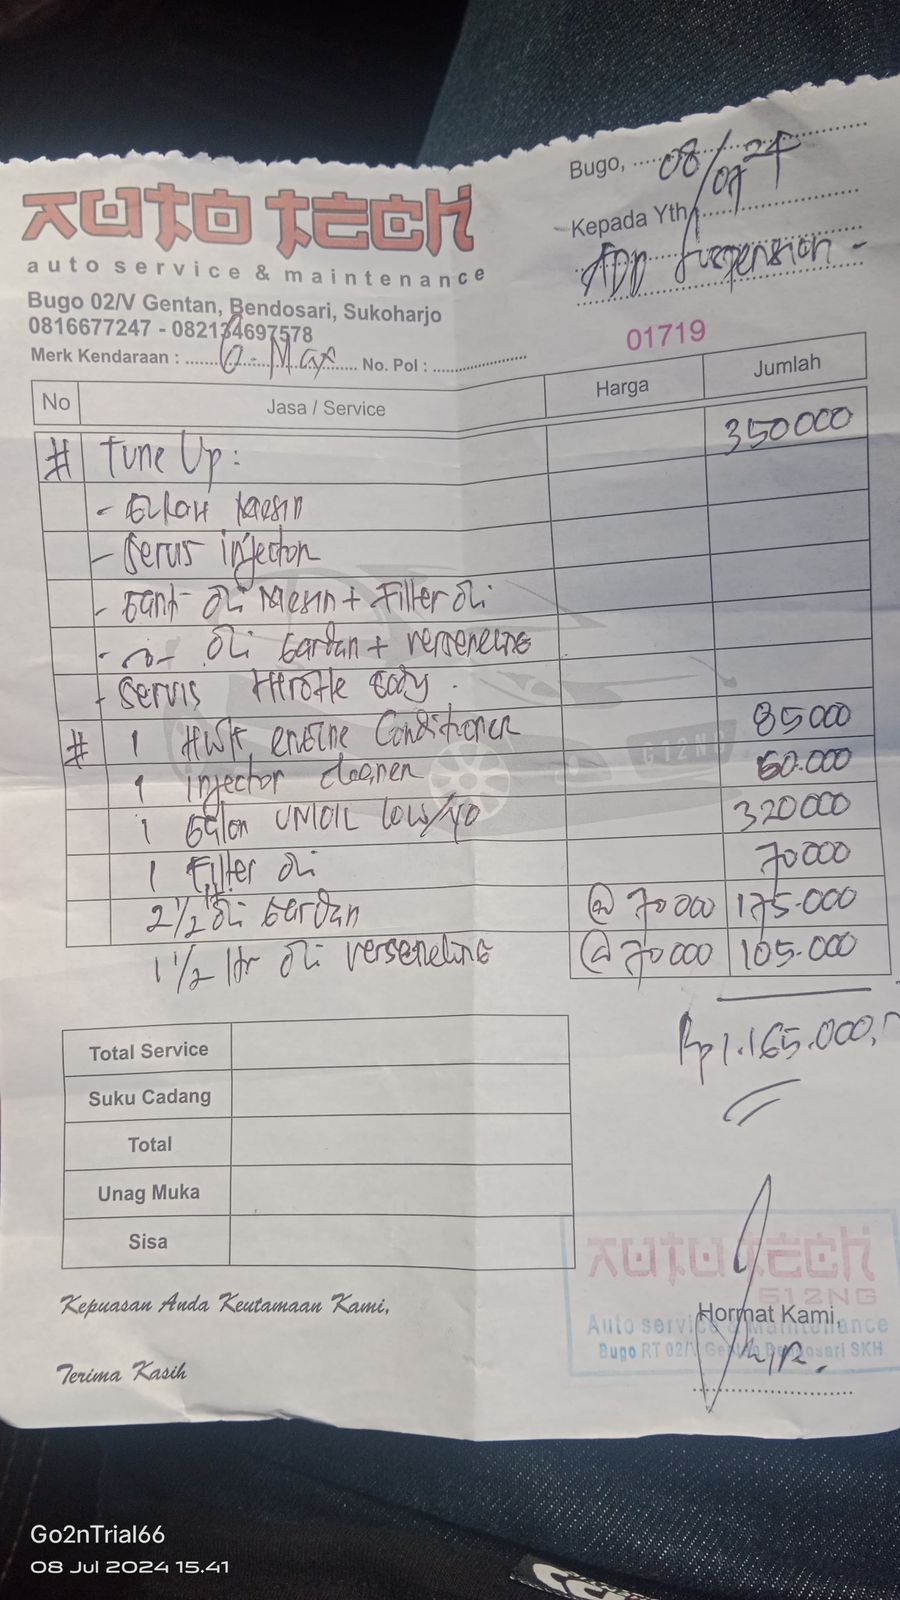 AUTO TECH
auto service & maintenance
Bugo 02/V Gentan, Bendosari, Sukoharjo
0816677247 - 082134697578
Merk Kendaraan : No. Pol :
Bugo, 08/07 24
Kepada Yth
ADD Suspension -
01719
No Jasa / Service Harga Jumlah
# Tune Up : 350000
- Mesin
- Servis injector
- Gant- Oli Mesin + Filter Oli
- Oli Gardan + Verseneling
- Servis throttle Body .
# 1 engine Conditioner 85000
1 injector cleaner 60.000
1 Galon 320000
1 Filter Oli 70000
2 1/2 Oli Gardan @ 70000 175.000
1 1/2 ltr Oli Verseneling @ 70000 105.000
Rp 1.165.000,
Total Service
Suku Cadang
Total
Unag Muka
Sisa
Kepuasan Anda Keutamaan Kami,
Terima Kasih
Hormat Kami,
AUTO TECH
G12NG
Auto service & Maintenance
Bugo RT 02/V Gentan Bendosari SKH
G12N
Go2nTrial66
08 Jul 2024 15.41